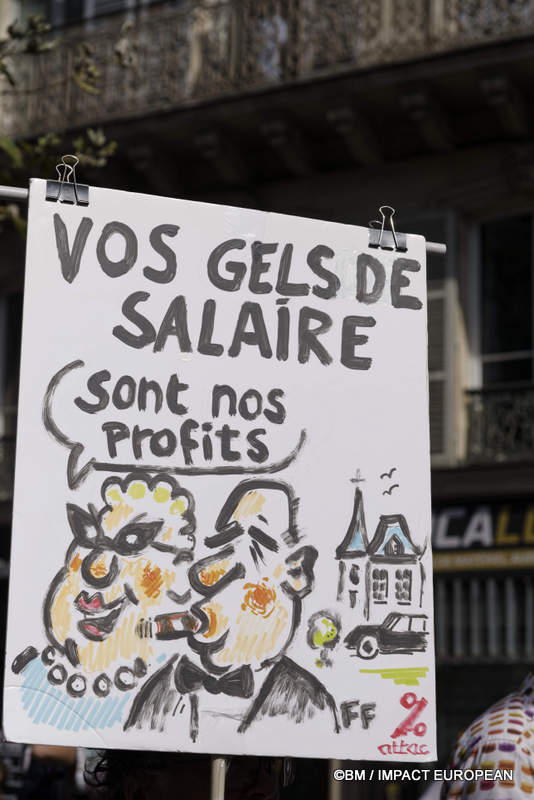 VOS GELS DE
SALAIRE
Sont nos
Profits
FF
%
attac
CAL
©BM / IMPACT EUROPEAN